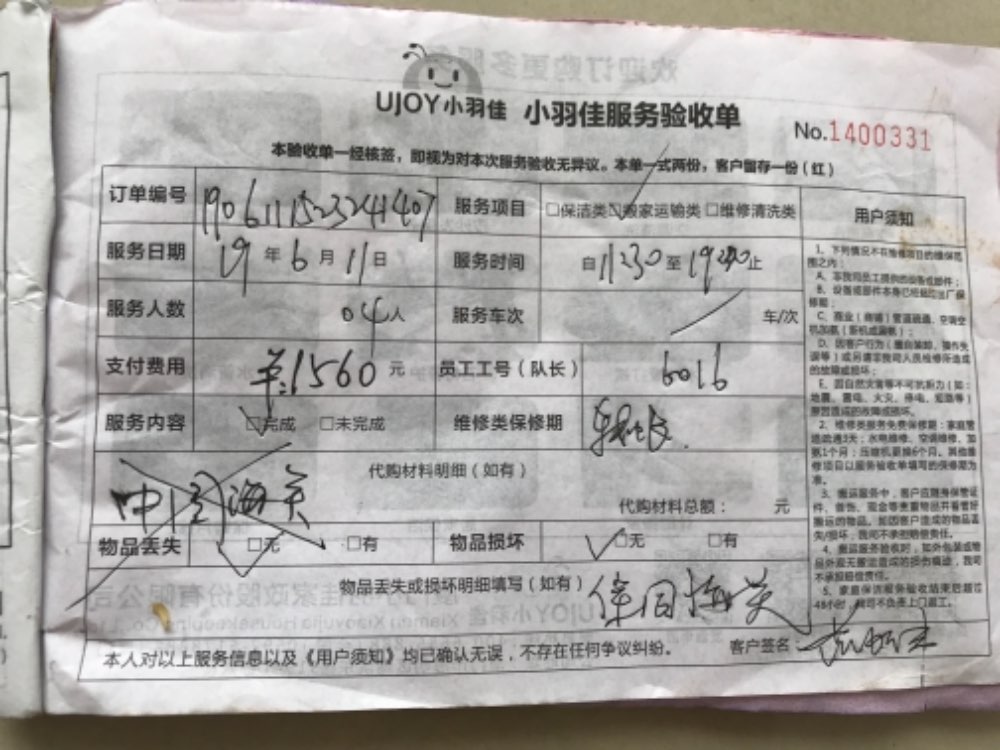 UJOY小羽佳 小羽佳服务验收单
No.1400331
本验收单一经核签，即视为对本次服务验收无异议。本单一式两份，客户留存一份（红）
订单编号 190611152324 1407 服务项目 □保洁类□搬家运输类□维修清洗类 用户须知
服务日期 19年6月11日 服务时间 自11:30至19 止
服务人数 04人 服务车次 年/次
支付费用 ¥:1560元 员工工号（队长） 6016
服务内容 □完成 □未完成 维修类保修期
代购材料明细（如有）
中国海关
代购材料总额： 元
物品丢失 □无 □有 物品损坏 □无 □有
物品丢失或损坏明细填写（如有）
本人对以上服务信息以及《用户须知》均已确认无误，不存在任何争议纠纷。 客户签名：
1、下列情况不在维修项目的维保范围之内：
A、非我司员工提供的设备或部件；
B、设备或部件本身已经超过出厂保修期；
C、商业（商铺）管道疏通、空调空机加氨（新机或漏氨）；
D、因客户行为（擅自装卸、操作失误等）或另请非我司人员检修所造成的故障或损坏；
E、因自然灾害等不可抗拒力（如：地震、雷电、火灾、停电、短路等）原因造成的故障或损坏。
2、维修类服务免费保修期：家庭管道疏通3天；水电维修、空调维修、加氨1个月；压缩机更换6个月。其他维修项目以服务验收单填写的保修期为准。
3、搬运服务中，客户应随身保管证件、首饰、现金等贵重物品并看管好搬运的物品。如因客户造成的物品丢失/损坏，我司不承担赔偿责任。
4、搬运服务验收时，如外包装或物品外观无搬运造成的损伤痕迹，我司不承担赔偿责任。
5、家庭保洁服务验收结束后超过48小时，我司不负责上门返工。